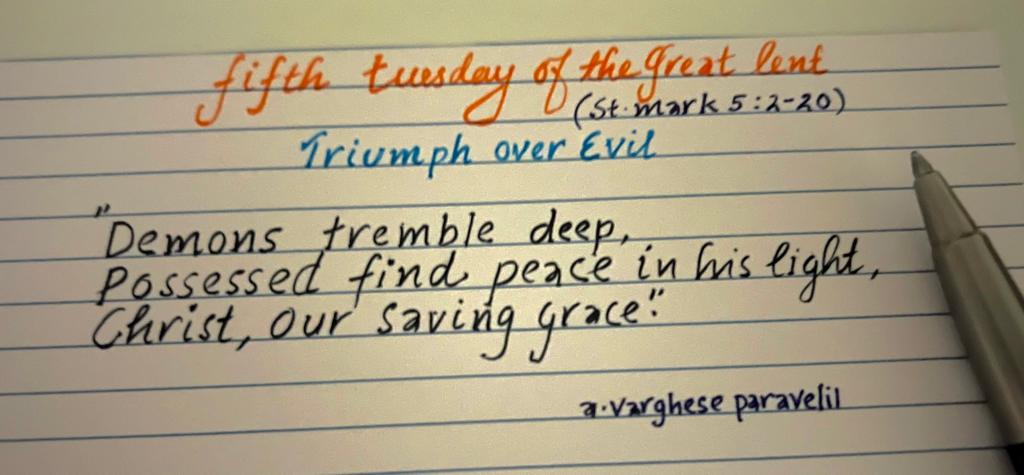 fifth tuesday of the great lent
(St. mark 5:2-20)
Triumph over Evil
"Demons tremble deep,
Possessed find peace in his light,
Christ, our saving grace."
a. varghese paravelil